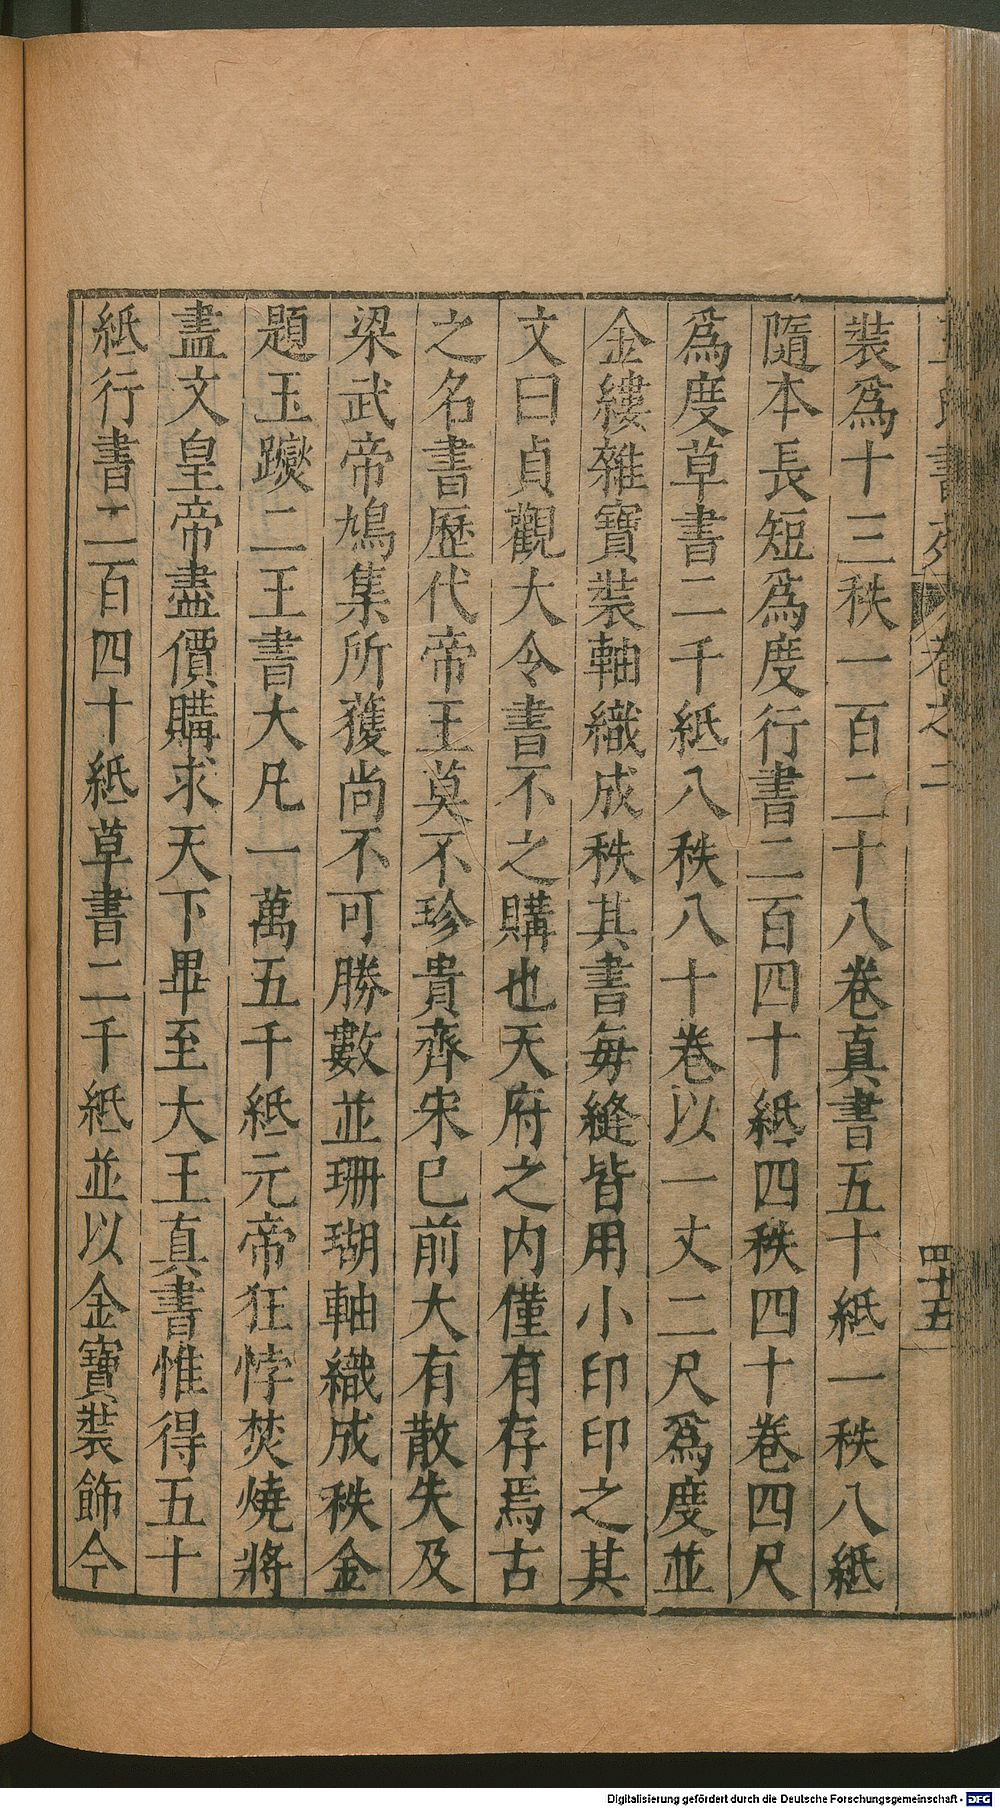 王氏書苑 卷之二 四十五
裝爲十三秩一百二十八卷真書五十紙一秩八紙
隨本長短爲度行書二百四十紙四秩四十卷四尺
爲度草書二千紙八秩八十卷以一丈二尺爲度並
金縷雜寶裝軸織成秩其書每縫皆用小印印之其
文曰貞觀大令書不之購也天府之内僅有存焉古
之名書歷代帝王莫不珍貴齊宋已前大有散失及
梁武帝鳩集所獲尚不可勝數並珊瑚軸織成秩金
題玉躞二王書大凡一萬五千紙元帝狂悖焚燒將
盡文皇帝盡價購求天下畢至大王真書惟得五十
紙行書二百四十紙草書二千紙並以金寶裝飾今
Digitalisierung gefördert durch die Deutsche Forschungsgemeinschaft - DFG